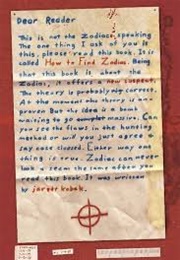 Dear Reader
This is not the Zodiac speaking
The one thing I ask of you is
this, please read this book. It is
called How to Find Zodiac. Being
that this book is about the
Zodiac, it offers a new suspect.
The theory is probably correct.
At the moment the theory is
proven But the idea is a bomb
waiting to go massive. Can
you see the flaws in the hunting
method or will you just agree &
say case closed. Either way one
thing is true. Zodiac can never
look or seem the same after you
read this book. It was written
by jarett kobek.